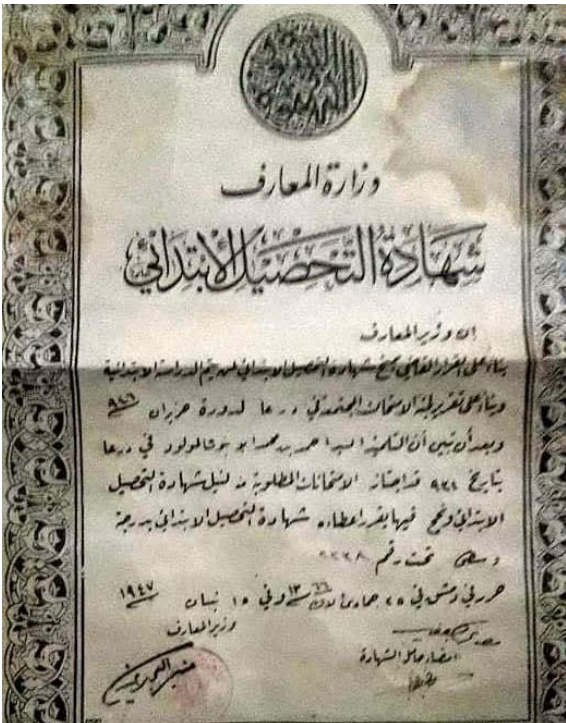 وزارة المعارف
شهادة التحصيل الابتدائي
ان وزير المعارف
بناء على القرار القاضي بمنح شهادة التحصيل الابتدائي لمن يتم الدراسة الابتدائية
وبناء على تقرير لجنة الامتحانات المجتمعة في درعا لدورة حزيران ٩٤٦
وبعد أن تبين أن التلميذ السيد احمد بن محمد المولود في درعا
بتاريخ ٩٣٤ قد اجتاز الامتحانات المطلوبة لنيل شهادة التحصيل
الابتدائي ونجح فيها يقرر اعطاءه شهادة التحصيل الابتدائي بدرجة
وسط تحت رقم
حرر في دمشق في ٢٥ جمادى الاولى ١٣٦٦ وفي ١٥ نيسان ١٩٤٧
وزير المعارف
امضاء حامل الشهادة